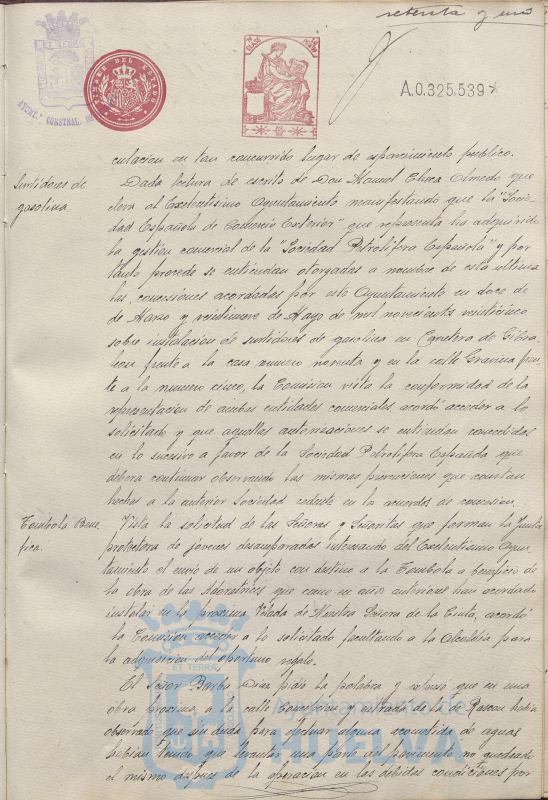 setenta y uno
EL TERRA
AYUNT.º CONSTNAL. DE
TIMBRE DEL ESTADO
8ª CLASE
A.0.325.539*
culacion en tan concurrido lugar de esparcimiento publico.
Surtidores de
gasolina
Dada lectura de escrito de Don Manuel Checa Olmedo que
eleva al Excelentisimo Ayuntamiento manifestando que la "Socie-
dad Española de Comercio Exterior" que representa ha adquirido
la gestion comercial de la "Sociedad Petrolifera Española" y por
tanto procede se entiendan otorgadas a nombre de esta ultima
las concesiones acordadas por este Ayuntamiento en doce de
de Marzo y veintinueve de Mayo de mil novecientos veinticinco
sobre instalacion de surtidores de gasolina en Carretera de Gibra-
leon frente a la casa numero noventa y en la calle Gravina fren-
te a la numero cinco, la Comision vista la conformidad de la
representacion de ambas entidades comerciales acordó acceder a lo
solicitado y que aquellas autorizaciones se entiendan concedidas
en lo sucesivo a favor de la Sociedad Petrolifera Española que
debera continuar observando las mismas prevenciones que constan
hechas a la anterior Sociedad cedente en los acuerdos de concesion.
Tombola Bene-
fica.
Vista la solicitud de las Señoras y Señoritas que forman la Junta
protectora de jovenes desamparadas interesando del Excelentisimo Ayun-
tamiento el envio de un objeto con destino a la Tombola a beneficio de
la obra de las Adoratrices que como en años anteriores han acordado
instalar en la proxima Velada de Nuestra Señora de la Cinta, acordó
la Comisión acceder a lo solicitado facultando a la Alcaldia para
la adquisicion del oportuno regalo.
El Señor Barba Diaz pidio la palabra y expuso que en una
obra proxima a la calle Concepcion y entrada de la de Rascon habia
observado que sin duda para efectuar alguna acometida de aguas
habian tenido que levantar una parte del pavimento no quedando
el mismo despues de la operacion en las debidas condiciones por
EL TERRA
Ayuntamiento de
HUELVA